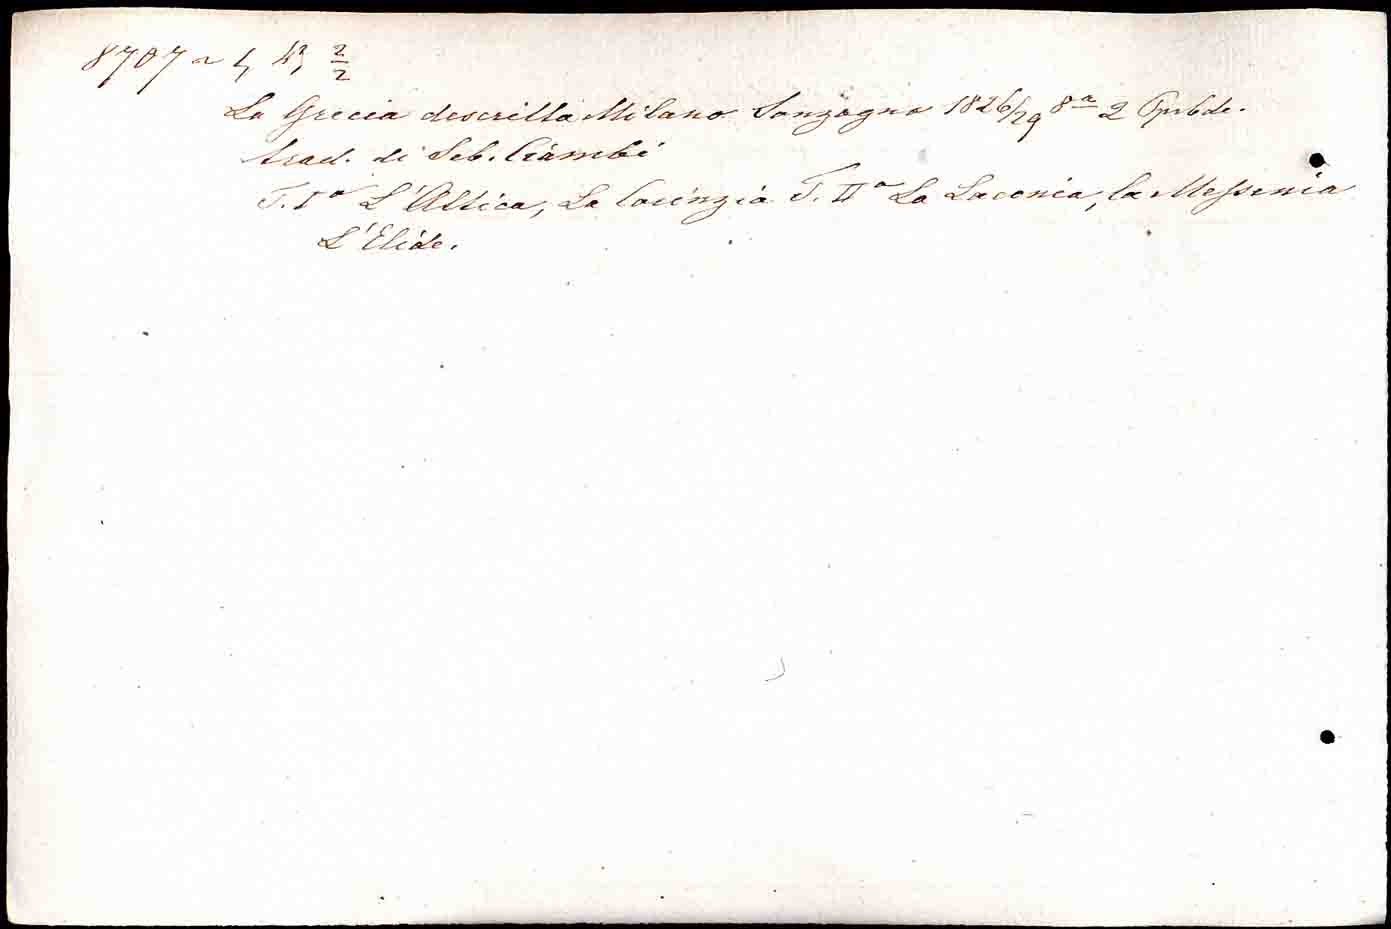 8707 ~ 4, 43, 2/2
La Grecia descritta Milano Sonzogno 1826/29 8º 2 Ppbde.
trad. di Seb. Ciambi
T. Iº L'Attica, La Corinzia T. IIº La Laconia, la Messenia
L'Elide.